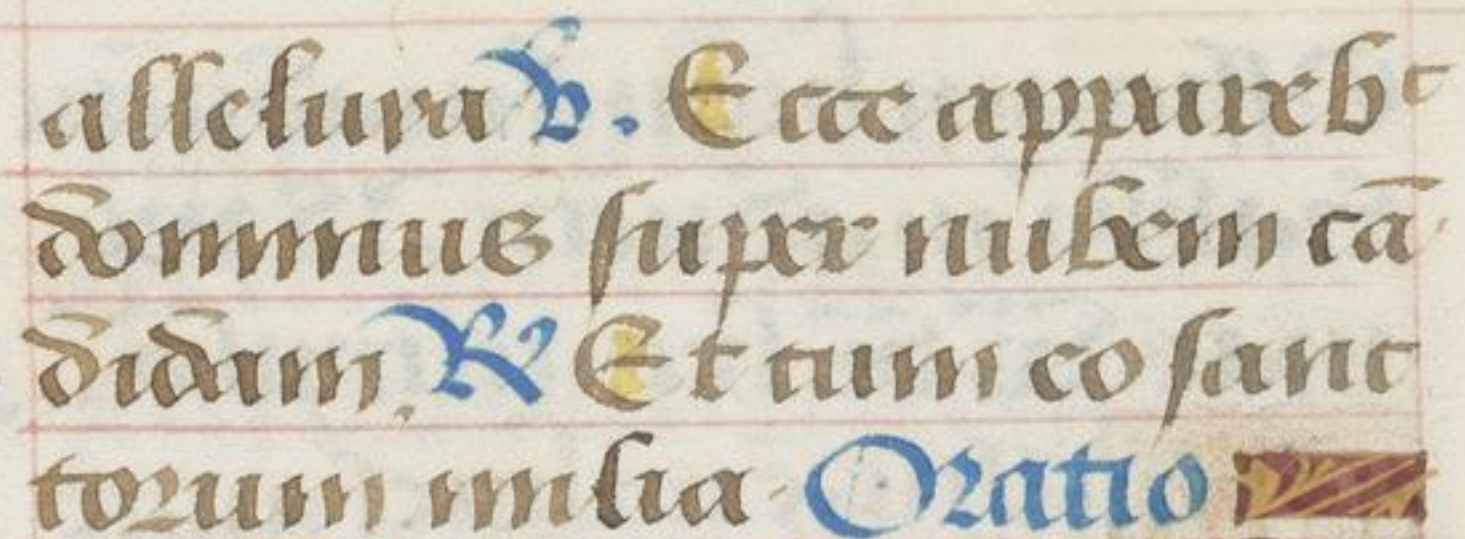 alleluya ℣. Ecce apparebᵗ
dominus super nubem cā
didam. ℟ Et cum eo sanc
torum milia. Oratio